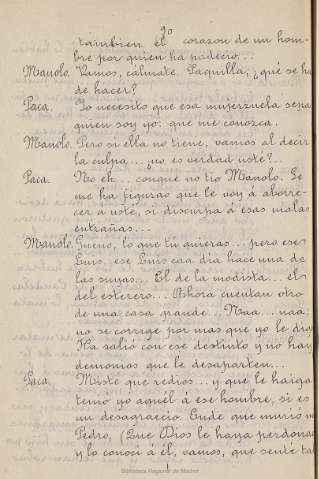 30
tambien el corazon de un hom-
bre por quien ha padecio...
Manolo. Vamos, cálmate Paquilla, ¿qué se ha
de hacer?
Paca. Yo necesito que esa mujerzuela sepa
quien soy yo: que me conozca.
Manolo. Pero si ella no tiene, vamos al decir
la culpa... ¿no es verdad usté?..
Paca. No eh... conque no tio Manolo. Se
me ha figurao que le voy á aborre-
cer á usté, si disculpa á esas malas
entrañas...
Manolo. Gueno, lo que tú quieras... pero ese
Luis, ese Luis caa dia hace una de
las suyas.. El de la modista... el
del esterero... Ahora cuentan otro
de una casa grande.. Naa... naa,
no se corrige por más que yo le dig
Ha salió con ese destinto y no hay
demonios que le desaparten...
Paca. Miste que redios... y que le haiga
tenió yo aquel á ese hombre, si es
un desagraecio. Ende que murió m
Pedro, (Que Dios le haya perdona
y lo conocí á él, vamos, que sentí ta
Biblioteca Regional de Madrid